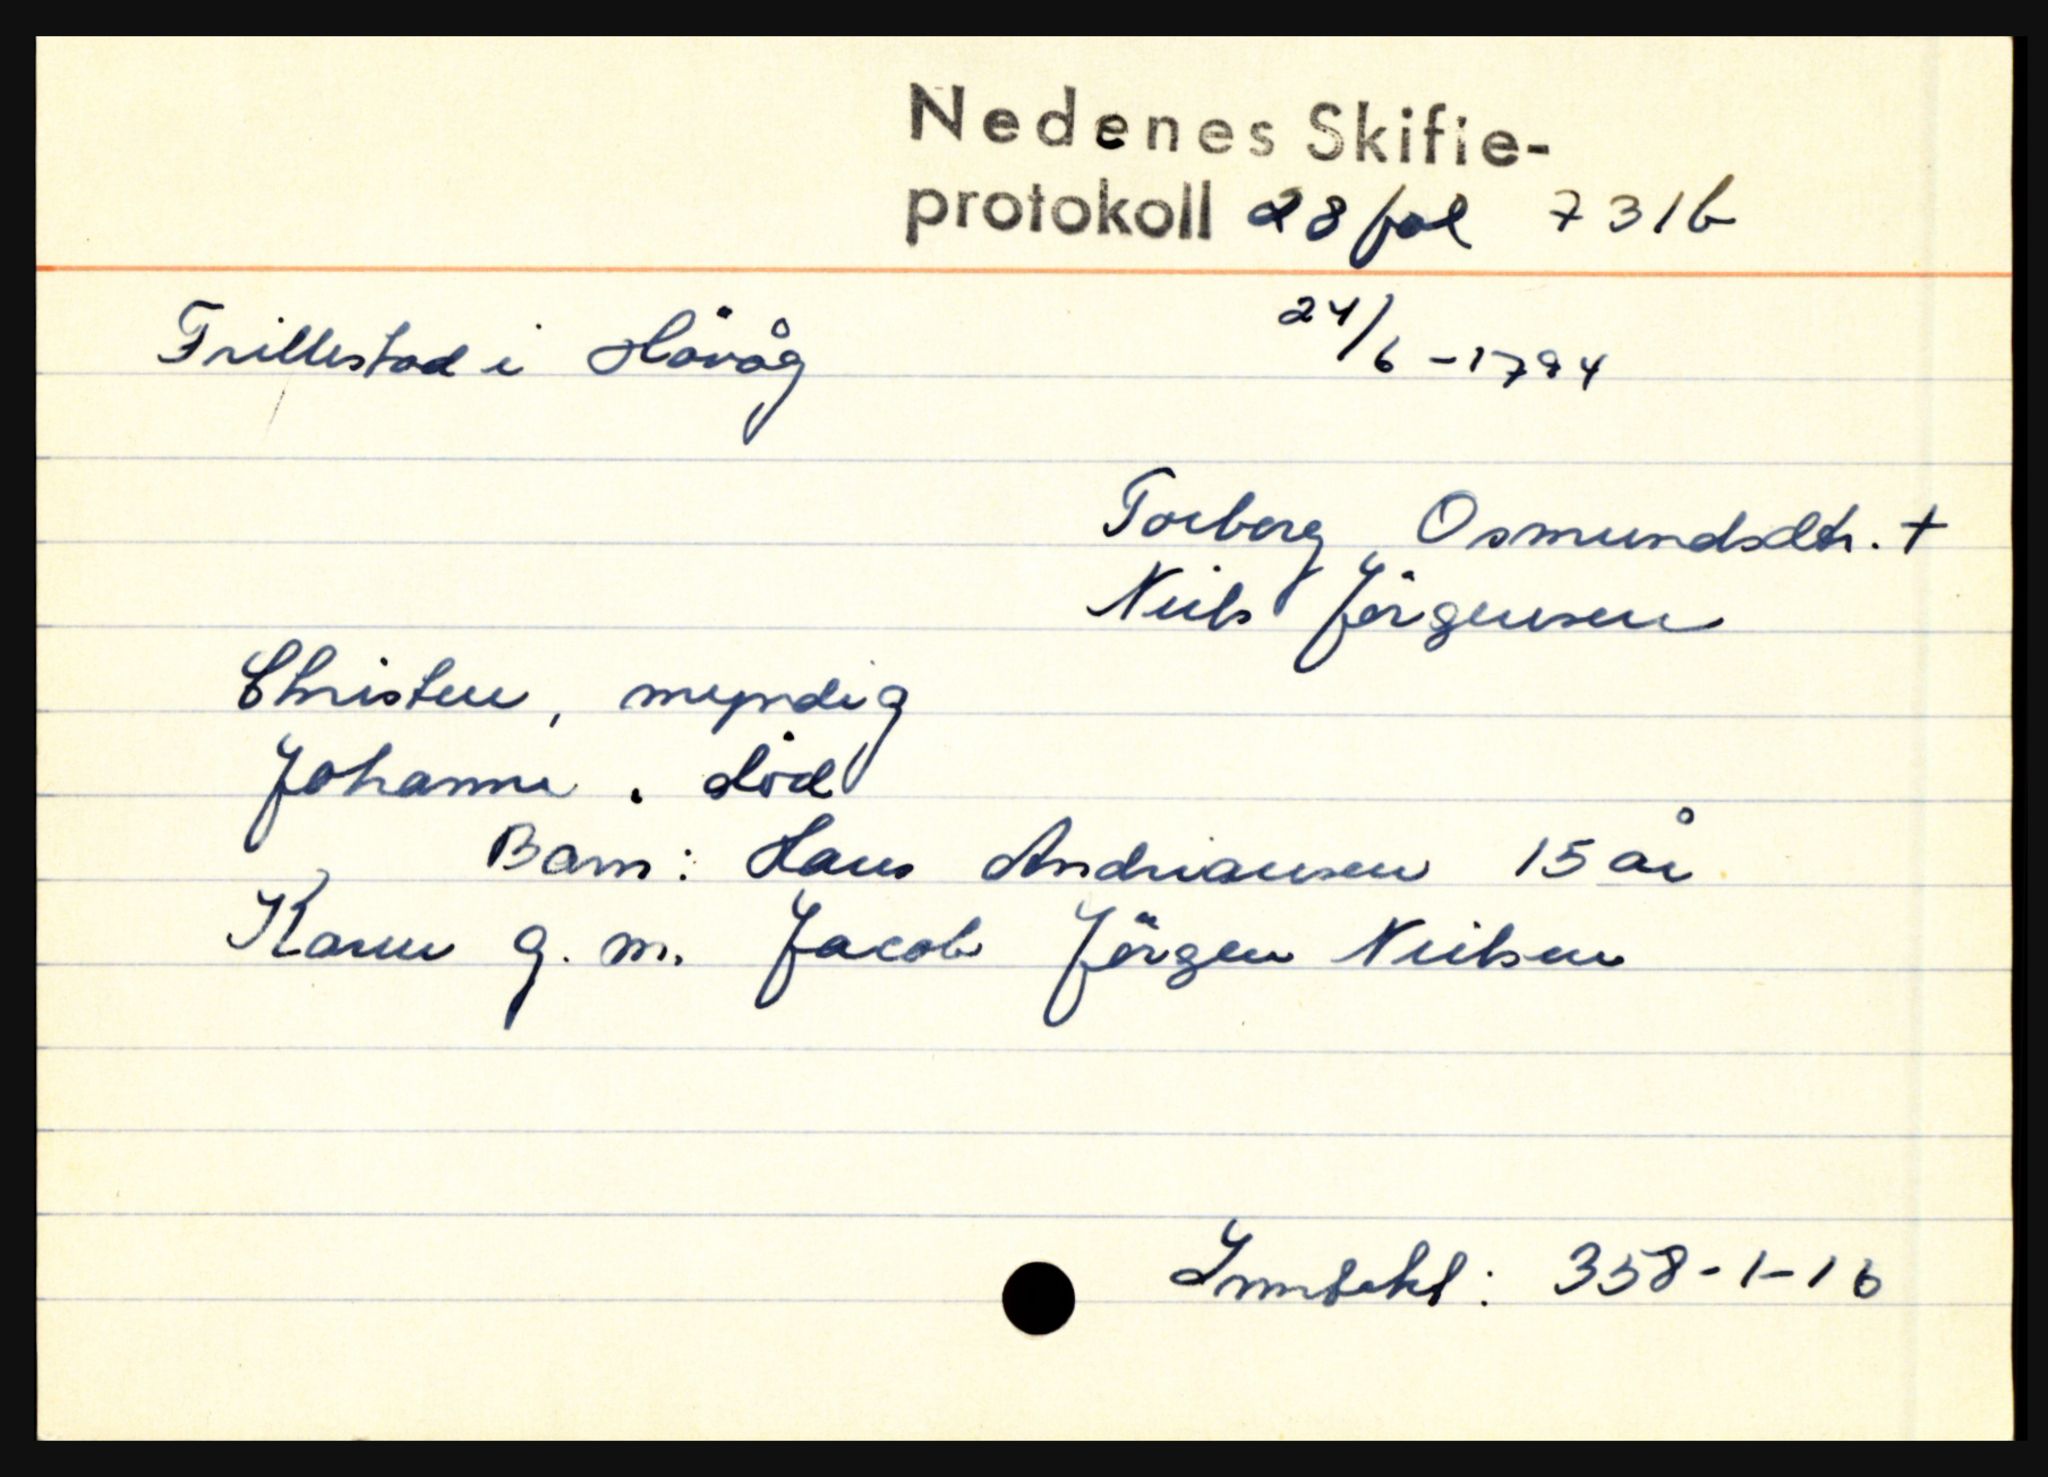 Nedenes Skifte-
protokoll 28 fol 731b
Trillestad i Hövåg 24/6 - 1794
Torborg Osmundsdtr. +
Niels Jörgensen
Christen, myndig
Johanne . död
Barn: Hans Andriansen 15 år
Karen g. m. Jacob Jörgen Nielsen
Inntekt: 358-1-16